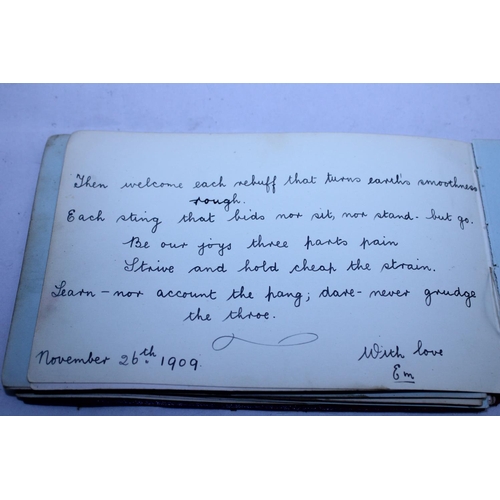 Then welcome each rebuff that turns earth's smoothness
rough.
Each sting that bids nor sit, nor stand - but go.
Be our joys three parts pain
Strive and hold cheap the strain.
Learn - nor account the pang; dare - never grudge
the throe.
November 26th. 1909.
With love
Em